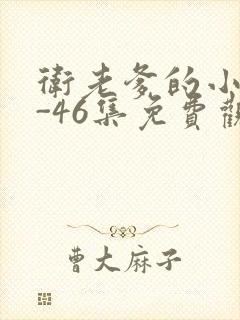 衛老爹的小
-46集免費觀
曹大麻子